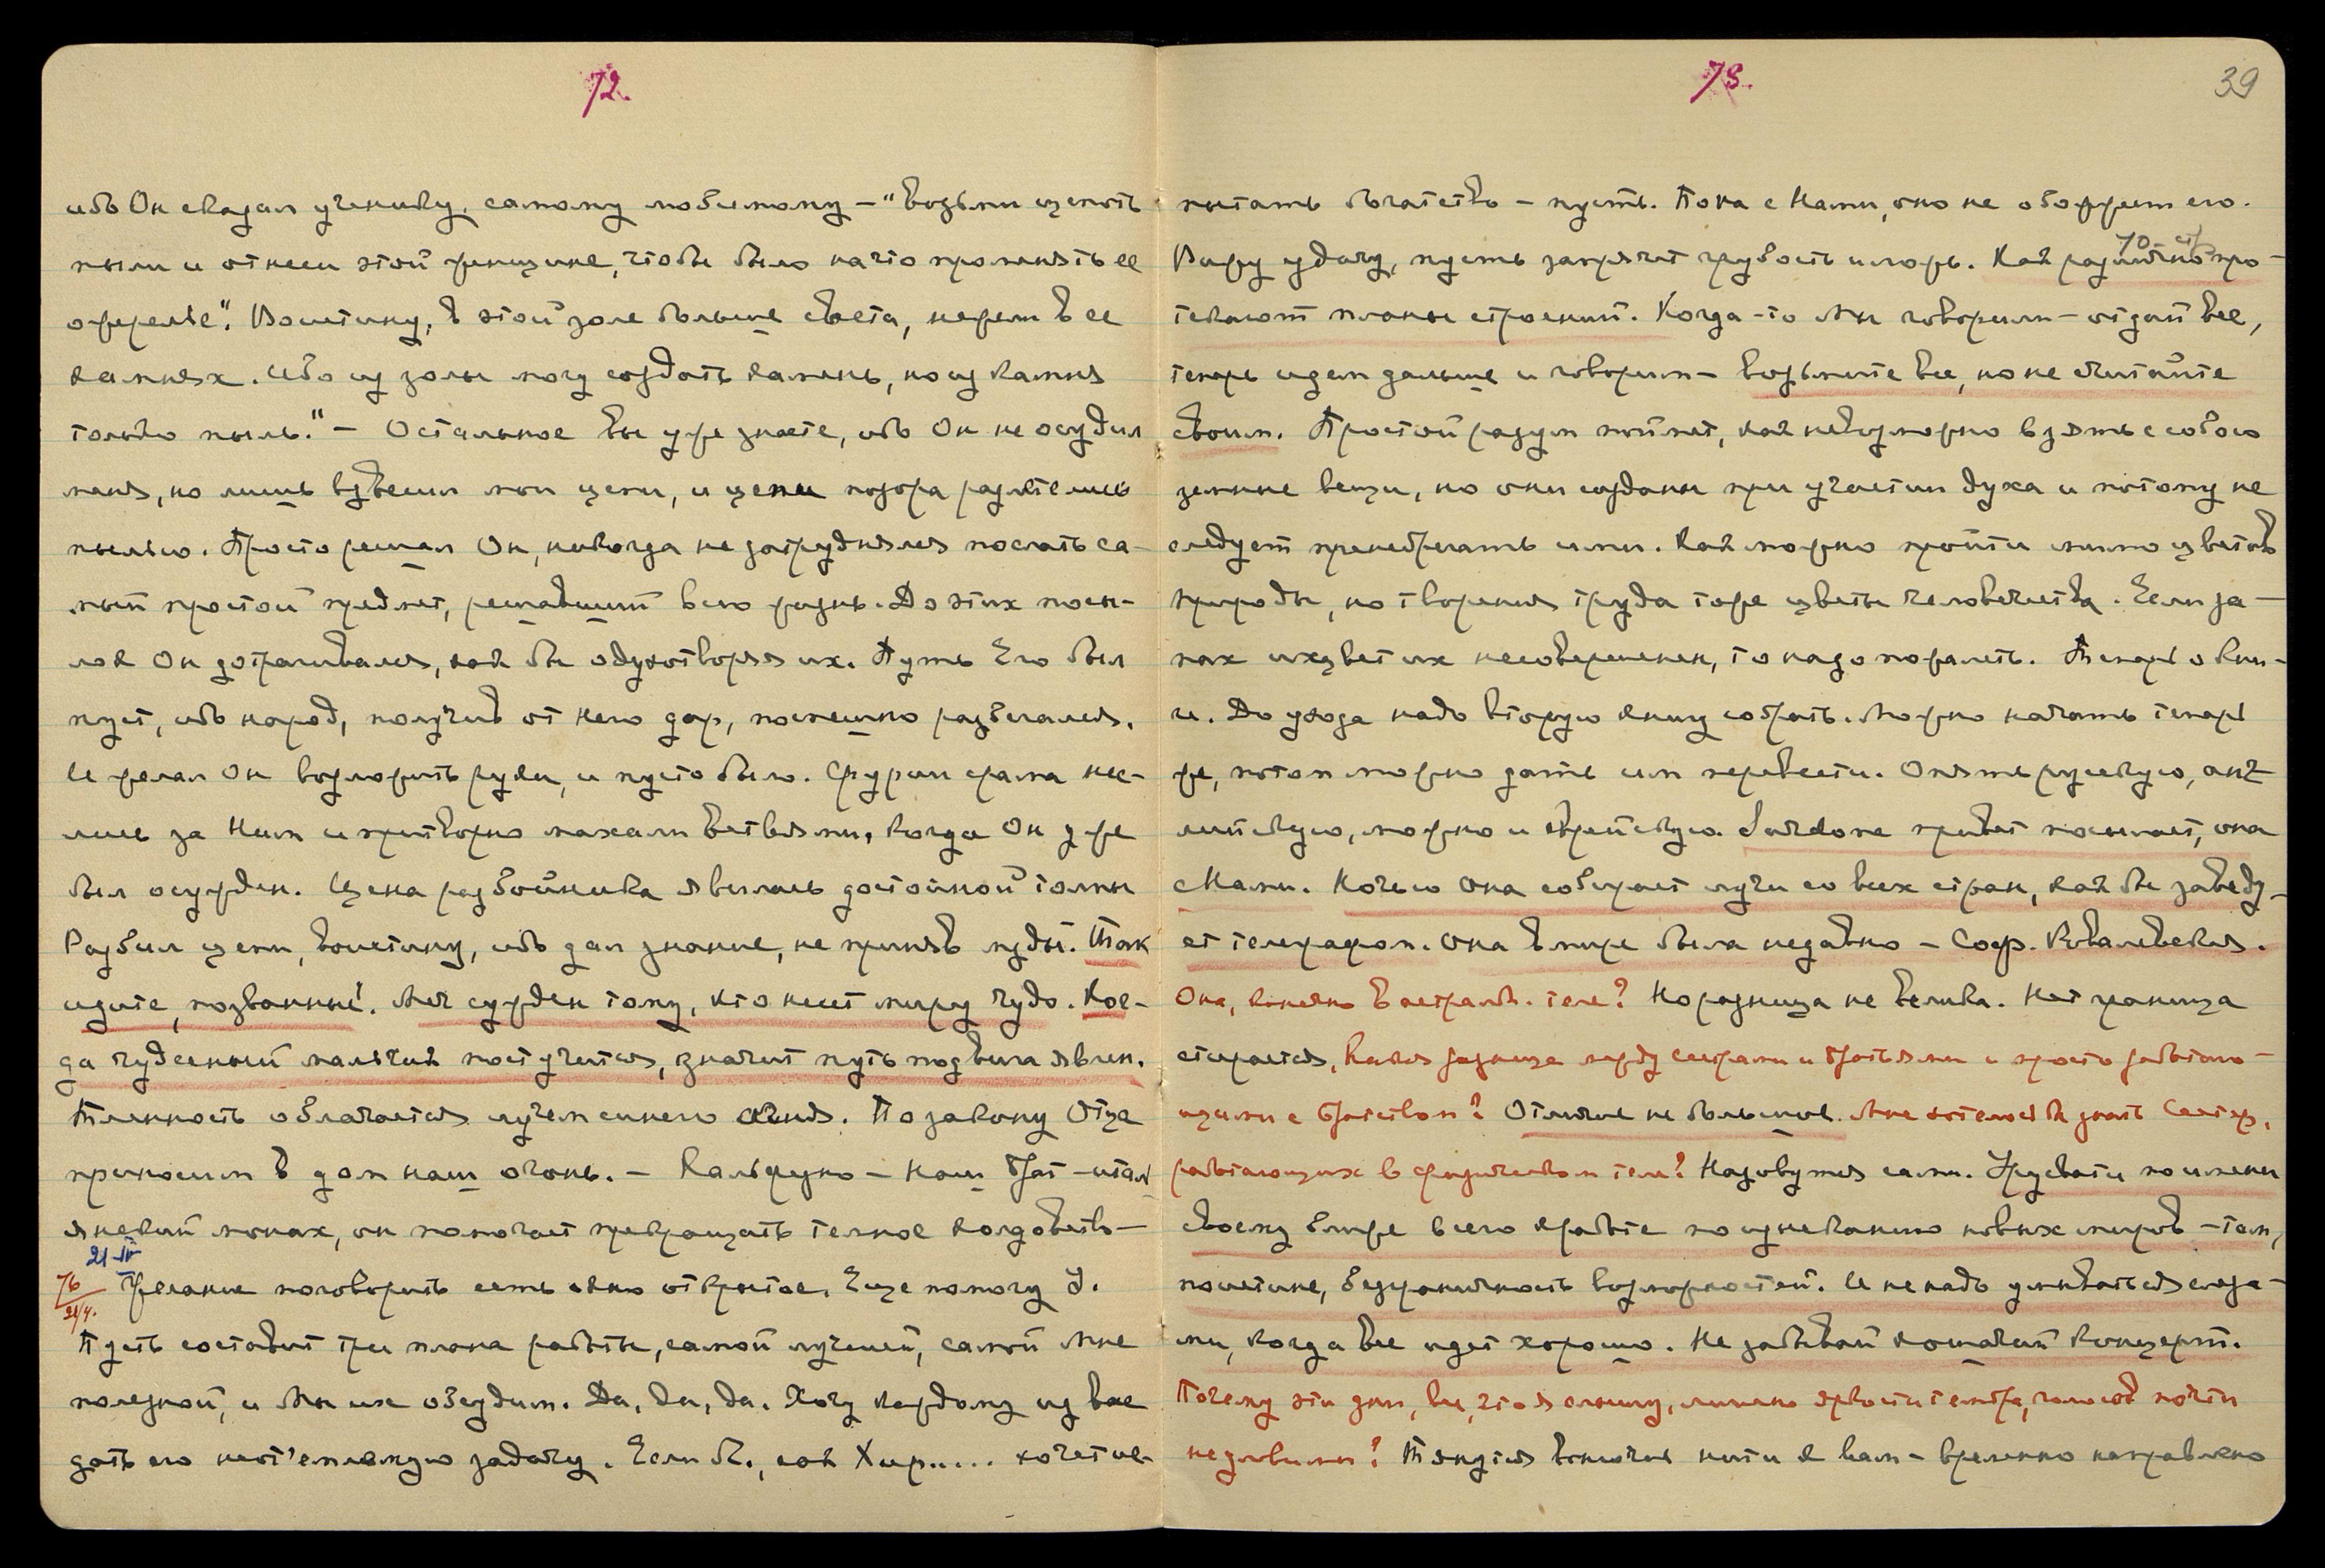 72.
ибо Он сказал ученику, самому любимому – "Возьми щепоть
пыли и отнеси этой женщине, чтобы было на что променять ее
ожерелье". Воистину, в этой золе больше света, нежели в ее
камнях. Ибо из золы могу создать камень, но из камня
только пыль." – Остальное вы уже знаете, ибо Он не осудил
меня, но лишь взвесил мои цепи, и цепи позора разлетелись
пылью. Просто решал Он, никогда не затруднялся послать са-
мый простой предмет, решавший всю жизнь. До этих посы-
лок Он дотрагивался, как бы одухотворяя их. Путь Его был
пуст, ибо народ, получив от него дар, поспешно разбегался.
И желал Он возложить руки, и пусто было. Фурии срама нес-
лись за Ним и притворно махали ветвями, когда Он уже
был осужден. Цена разбойника явилась достойной толпы
Разбил цепи, воистину, ибо дал знание, не приняв мзды. Так
идите, позванные! Меч сужден тому, кто несет миру чудо. Ког-
да чудесный мальчик постучится, значит путь подвига явлен.
Тленность облачается лучем синего огня. По закону Отца
приносим в дом наш огонь. – Кальфуно – Наш брат – италь
янский монах, он помогает прекращать темное колдовство –
21-IV
76
21/4.
Желание поговорить есть окно открытое. Еще помогу У.
Пусть составит три плана работы, самой лучшей, самой Мне
полезной, и Мы их обсудим. Да, да, да. Хочу каждому из вас
дать его неотъемлемую задачу. Если б., как Хир..... хочет ис-
73.
39
пытать богатство – пусть. Пока с Нами, оно не обожжет его.
Вижу удачу, пусть запрячет грубость и ложь. Как различно про-
70 стр
текают планы строений. Когда-то Мы говорили – отдай все,
теперь идем дальше и говорим – возьмите все, но не считайте
своим. Простой разум поймет, как невозможно взять с собою
земные вещи, но они созданы при участии духа и потому не
следует пренебрегать ими. Как можно пройти мимо цветов
природы, но творения труда тоже цветы человечества. Если за-
пах их, цвет их несовершенен, то надо пожалеть. Теперь о кни-
ге. До ухода надо вторую книгу собрать. Можно начать теперь
же, потом можно дать им перевести. Опять русскую, анг-
лийскую, можно и еврейскую. привет посылает, она
с Нами. Ночью она собирает лучи со всех стран, как бы заведу-
ет телеграфом. Она в мире была недавно – Соф. Ковалевская.
Она, конечно в астральн. теле? Но разница не велика. Нет граница
стирается, Какая разница между сестрами и братьями и просто работаю-
щими с Братством? Отличие не большое. Мне хотелось б знать Сестер,
работающих в физическом теле? Назовутся сами. Урусвати по имени
своему ближе всего к работе по изысканию новых миров – там,
поистине, безграничность возможностей. И не надо умываться слеза-
ми, когда все идет хорошо. Не забывай кошачий концерт.
Почему эти дни, все, что я слышу, лишено яркости тембра, голосов почти
не уловимы? Тянутся вонючие нити к вам – временно направлено